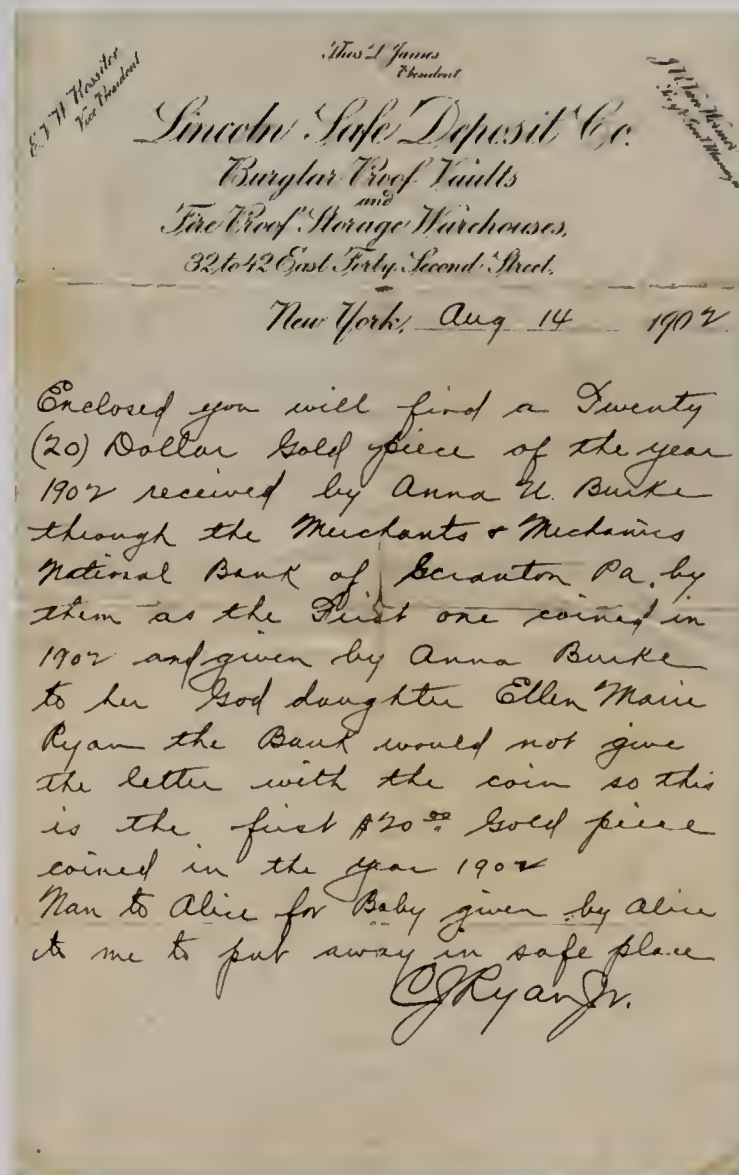 Thos L James
President
E. V. W. Rossiter
Vice President
Lincoln Safe Deposit Co.
Burglar Proof Vaults
and
Fire Proof Storage Warehouses,
32 to 42 East Forty Second Street.
New York, Aug 14 1902
Enclosed you will find a Twenty
(20) Dollar Gold piece of the year
1902 received by Anna U. Burke
through the Merchants & Mechanics
National Bank of Scranton Pa. by
them as the First one coined in
1902 and given by Anna Burke
to her God daughter Ellen Marie
Ryan the Bank would not give
the letter with the coin so this
is the first $20.00 Gold piece
coined in the year 1902
Nan to Alice for Baby given by Alice
to me to put away in safe place
CJRyanJr.